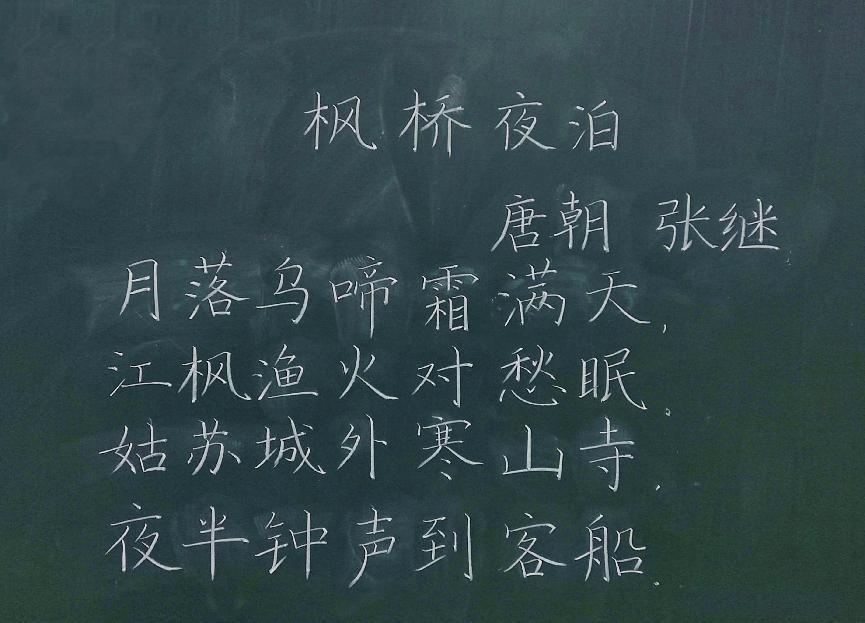 枫桥夜泊
唐朝 张继
月落乌啼霜满天，
江枫渔火对愁眠。
姑苏城外寒山寺，
夜半钟声到客船。